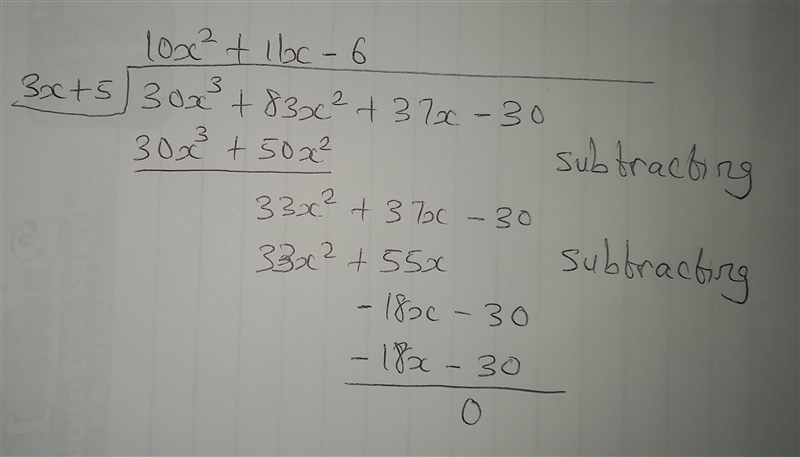 10x² + 11x - 6
3x+5 | 30x³ + 83x² + 37x - 30
30x³ + 50x² subtracting
33x² + 37x - 30
33x² + 55x subtracting
-18x - 30
-18x - 30
0